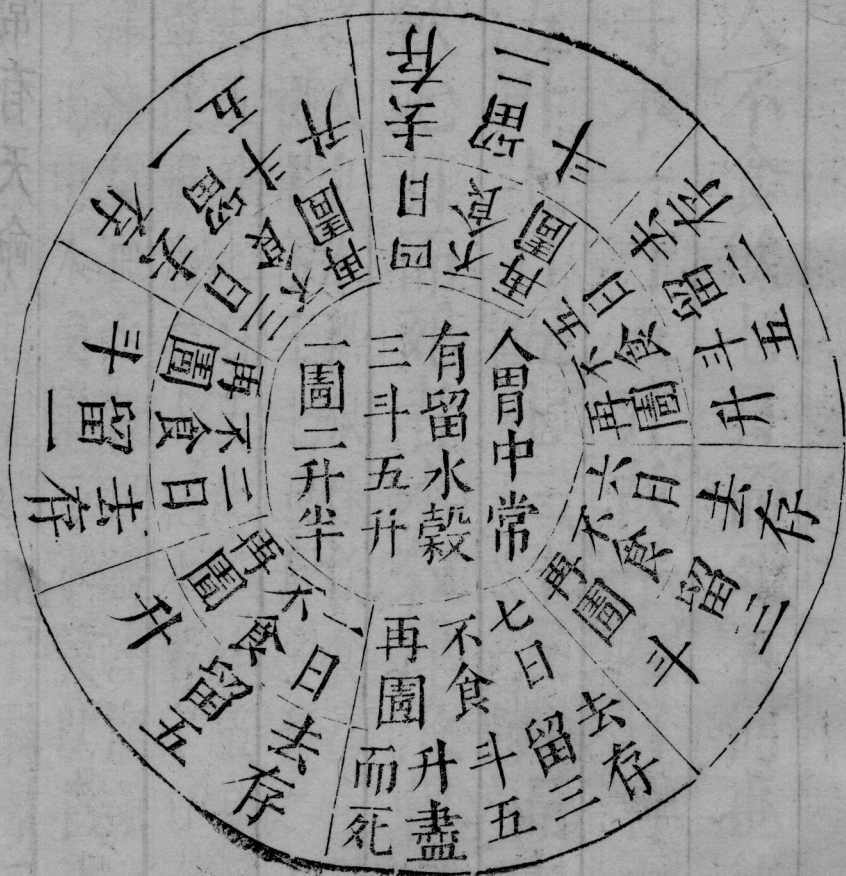 人胃中常
有留水穀
三斗五升
一圊二升半
一日
不食
再圊
去存
留五
升
二日
不食
再圊
去存
留一
斗
三日
不食
再圊
去存
留一
斗五
升
四日
不食
再圊
去存
留二
斗
五日
不食
再圊
去存
留二
斗五
升
六日
不食
再圊
去存
留三
斗
七日
不食
再圊
去存
留三
斗五
升盡
而死